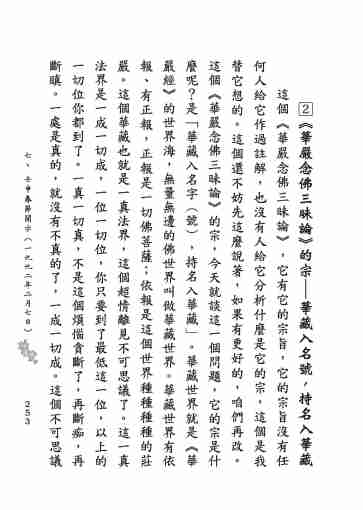 2《華嚴念佛三昧論》的宗——華藏入名號，持名入華藏
這個《華嚴念佛三昧論》，它有它的宗旨，它的宗旨沒有任
何人給它作過註解，也沒有人給它分析什麼是它的宗，這個是我
替它想的。這個還不妨先這麼說著，如果有更好的，咱們再改。
這個《華嚴念佛三昧論》的宗，今天就談這一個問題，它的宗是什
麼呢？是「華藏入名字（號），持名入華藏」。華藏世界就是《華
嚴經》的世界海，無量無邊的佛世界叫做華藏世界。華藏世界有依
報、有正報，正報是一切佛菩薩；依報是這個世界種種種種的莊
嚴。這個華藏也就是一真法界，這個超情離見不可思議了。這一真
法界是一成一切成，一位一切位，你只要到了最低這一位，以上的
一切位你都到了。一真一切真，不是這個煩惱貪斷了，再斷痴，再
斷瞋。一處是真的，就沒有不真的了，一成一切成。這個不可思議
七、壬申春節開示（一九九二年二月七日）
253